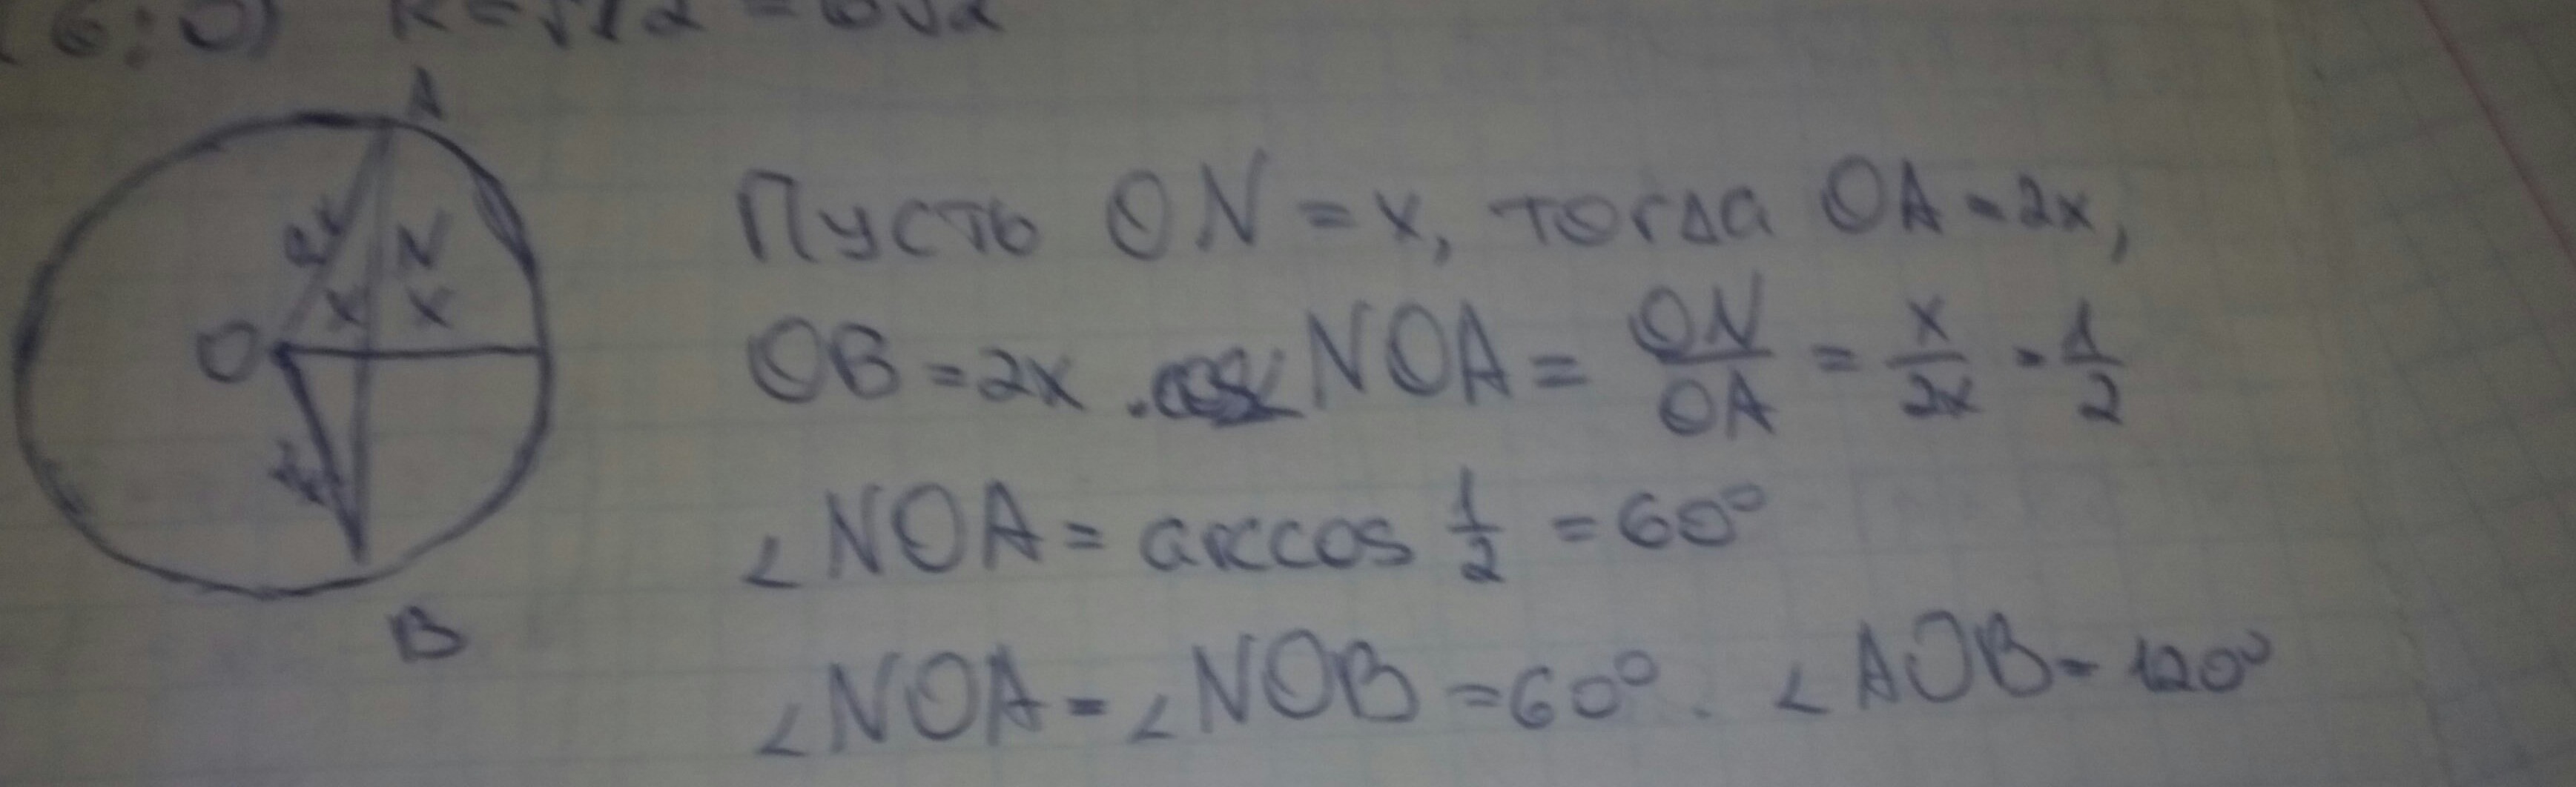 (6;0) R=√72 = 6√2
A
2x N
x x
O
2x
B
Пусть ON = x, тогда OA = 2x,
OB = 2x . cos NOA = ON/OA = x/2x = 1/2
∠NOA = arccos 1/2 = 60°
∠NOA = ∠NOB = 60°. ∠AOB = 120°